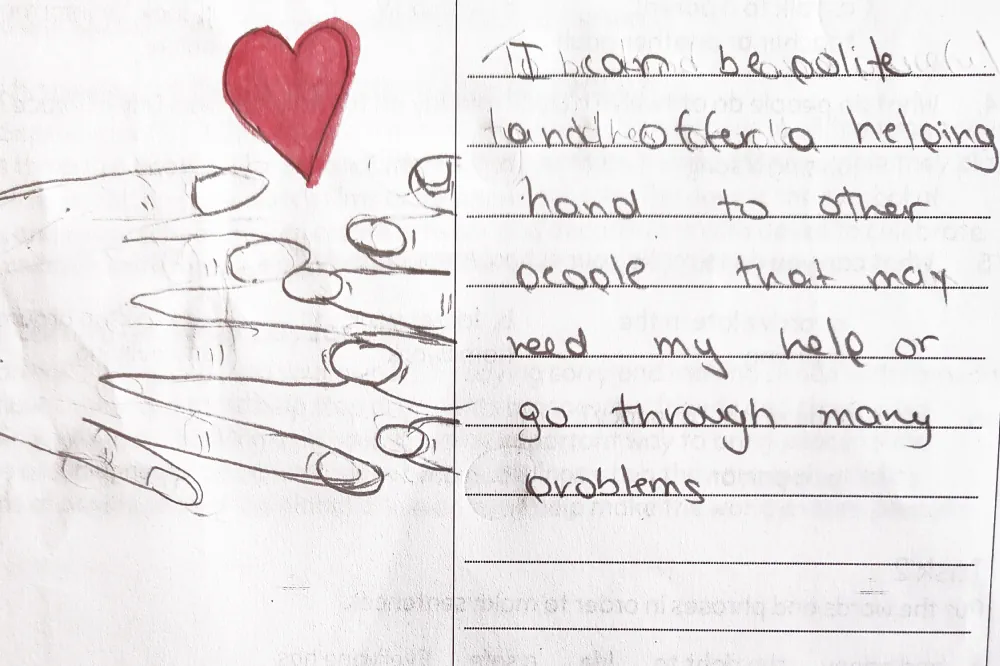 I can be polite
and offer a helping
hand to other
people that may
need my help or
go through many
problems